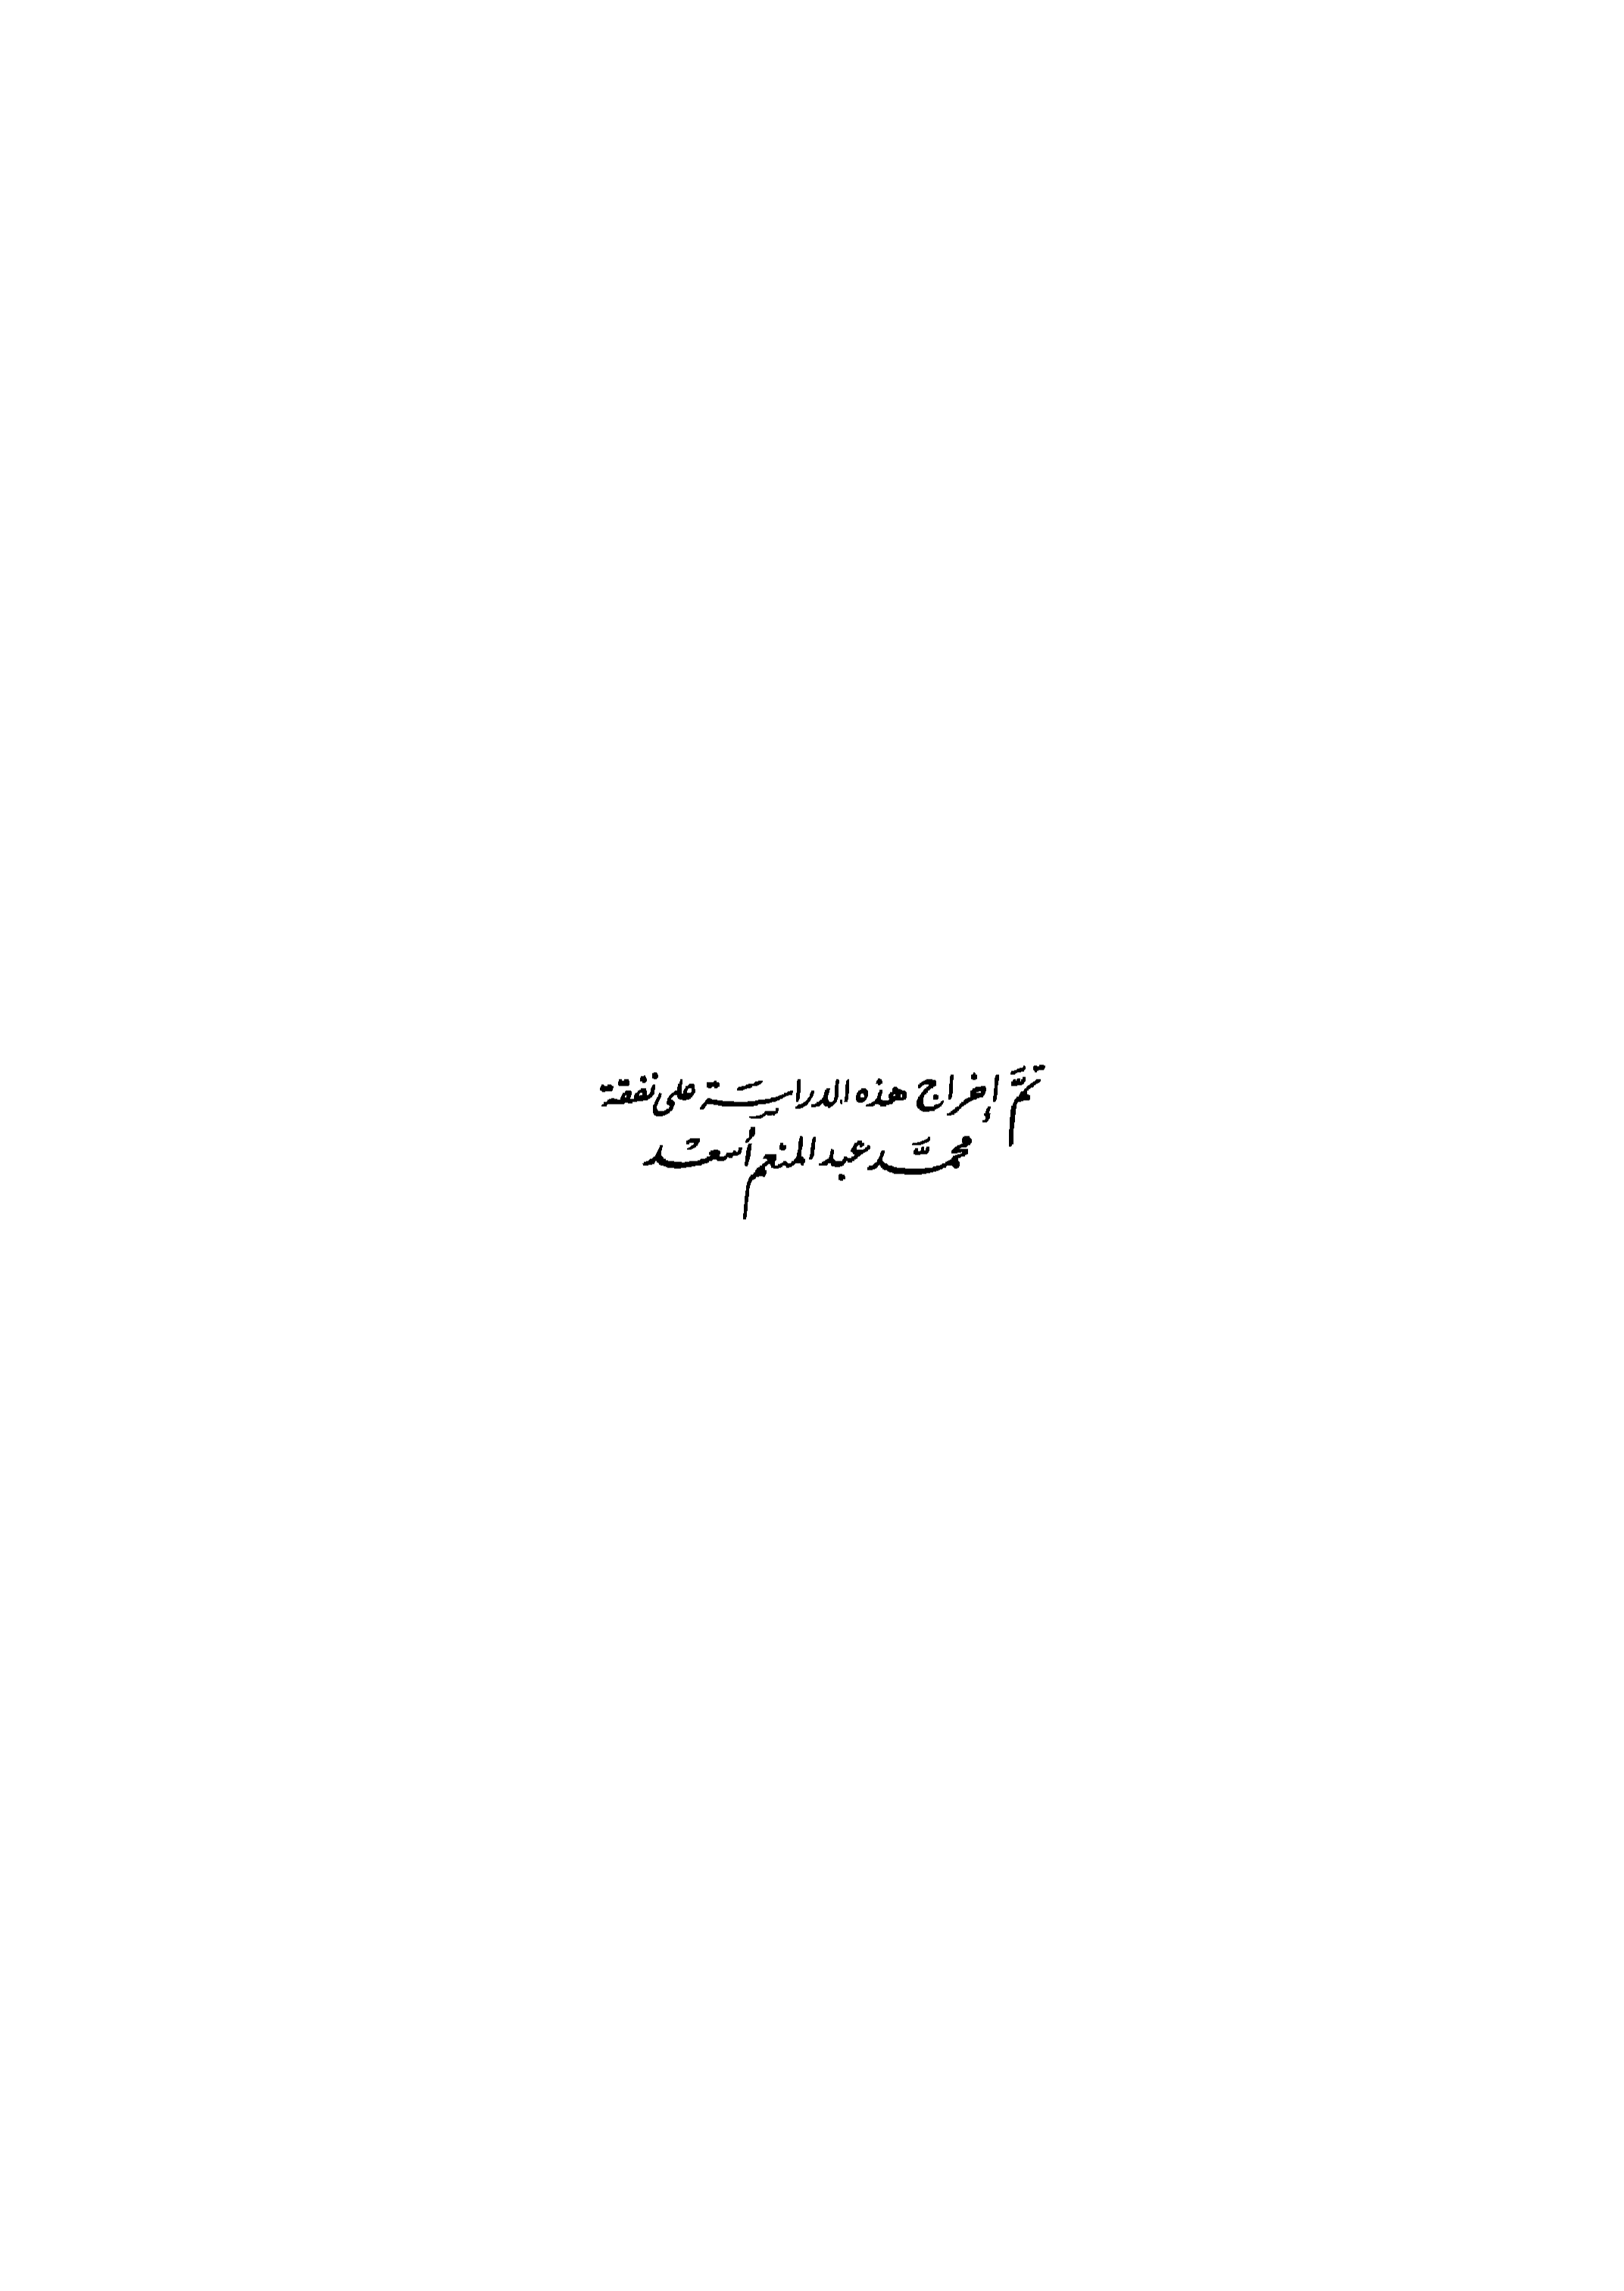 تمَّ إخراج هذه الدراسَة على نفقة
محمَّد عبد المنعم أسعد